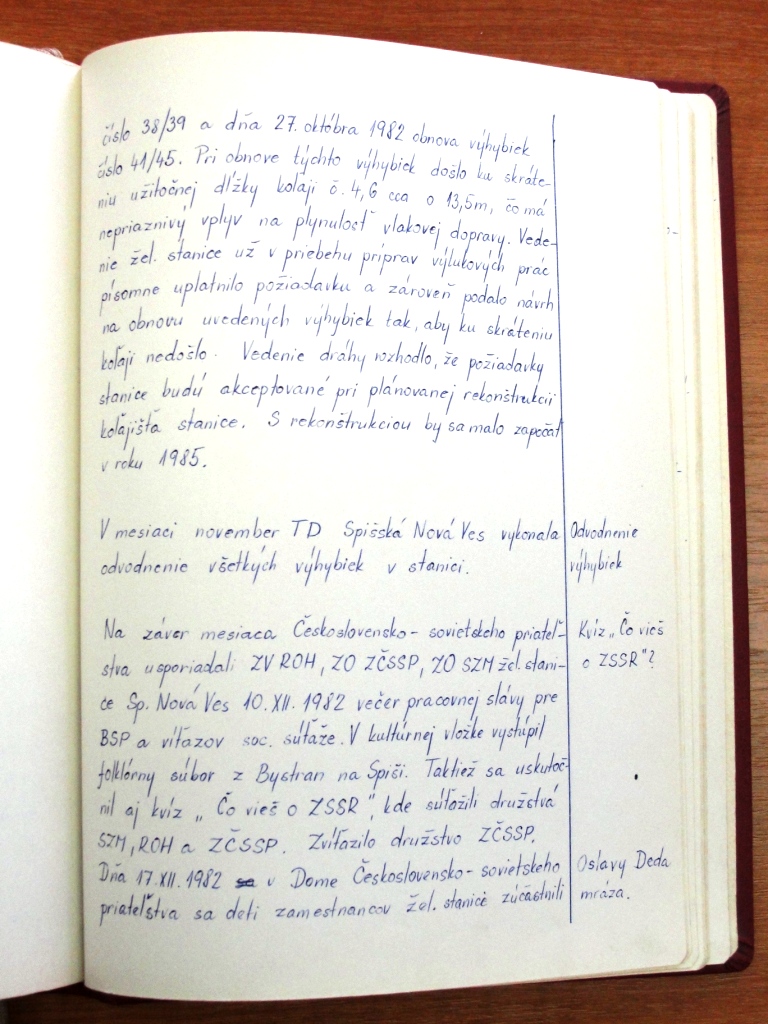 číslo 38/39 a dňa 27. októbra 1982 obnova výhybiek
číslo 41/45. Pri obnove týchto výhybiek došlo ku skráte-
niu užitočnej dĺžky kolají č. 4, 6 cca o 13,5m, čo má
nepriaznivý vplyv na plynulosť vlakovej dopravy. Vede-
nie žel. stanice už v priebehu príprav výlukových prác
písomne uplatnilo požiadavku a zároveň podalo návrh
na obnovu uvedených výhybiek tak, aby ku skráteniu
koľají nedošlo. Vedenie dráhy rozhodlo, že požiadavky
stanice budú akceptované pri plánovanej rekonštrukcii
koľajišťa stanice. S rekonštrukciou by sa malo započať
v roku 1985.
V mesiaci november TD Spišská Nová Ves vykonala
odvodnenie všetkých výhybiek v stanici.
Odvodnenie
výhybiek
Na záver mesiaca Československo - sovietskeho priateľ-
stva usporiadali ZV ROH, ZO ZČSSP, ZO SZM žel. stani-
ce Sp. Nová Ves 10. XII. 1982 večer pracovnej slávy pre
BSP a víťazov soc. súťaže. V kultúrnej vložke vystúpil
folklórny súbor z Bystran na Spiši. Taktiež sa uskutoč-
nil aj kvíz „ Čo vieš o ZSSR ", kde súťažili družstvá
SZM, ROH a ZČSSP. Zvíťazilo družstvo ZČSSP.
Kvíz „Čo vieš
o ZSSR"?
Dňa 17. XII. 1982 sa v Dome Československo - sovietskeho
priateľstva sa deti zamestnancov žel. stanice zúčastnili
Oslavy Deda
mráza.